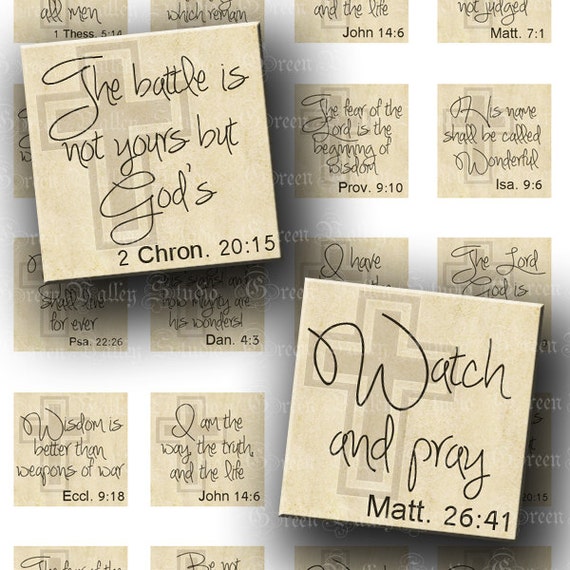 all men
1 Thess. 5:14
which remain
and the life
John 14:6
not judged
Matt. 7:1
The battle is
not yours but
God's
2 Chron. 20:15
The fear of the
Lord is the
beginning of
wisdom
Prov. 9:10
His name
shall be called
Wonderful
Isa. 9:6
shall live
for ever
Psa. 22:26
how mighty are
his wonders!
Dan. 4:3
I have
The Lord
God is
Watch
and pray
Matt. 26:41
Wisdom is
better than
weapons of war
Eccl. 9:18
I am the
way, the truth,
and the life
John 14:6
20:15
The fear of the
Be not